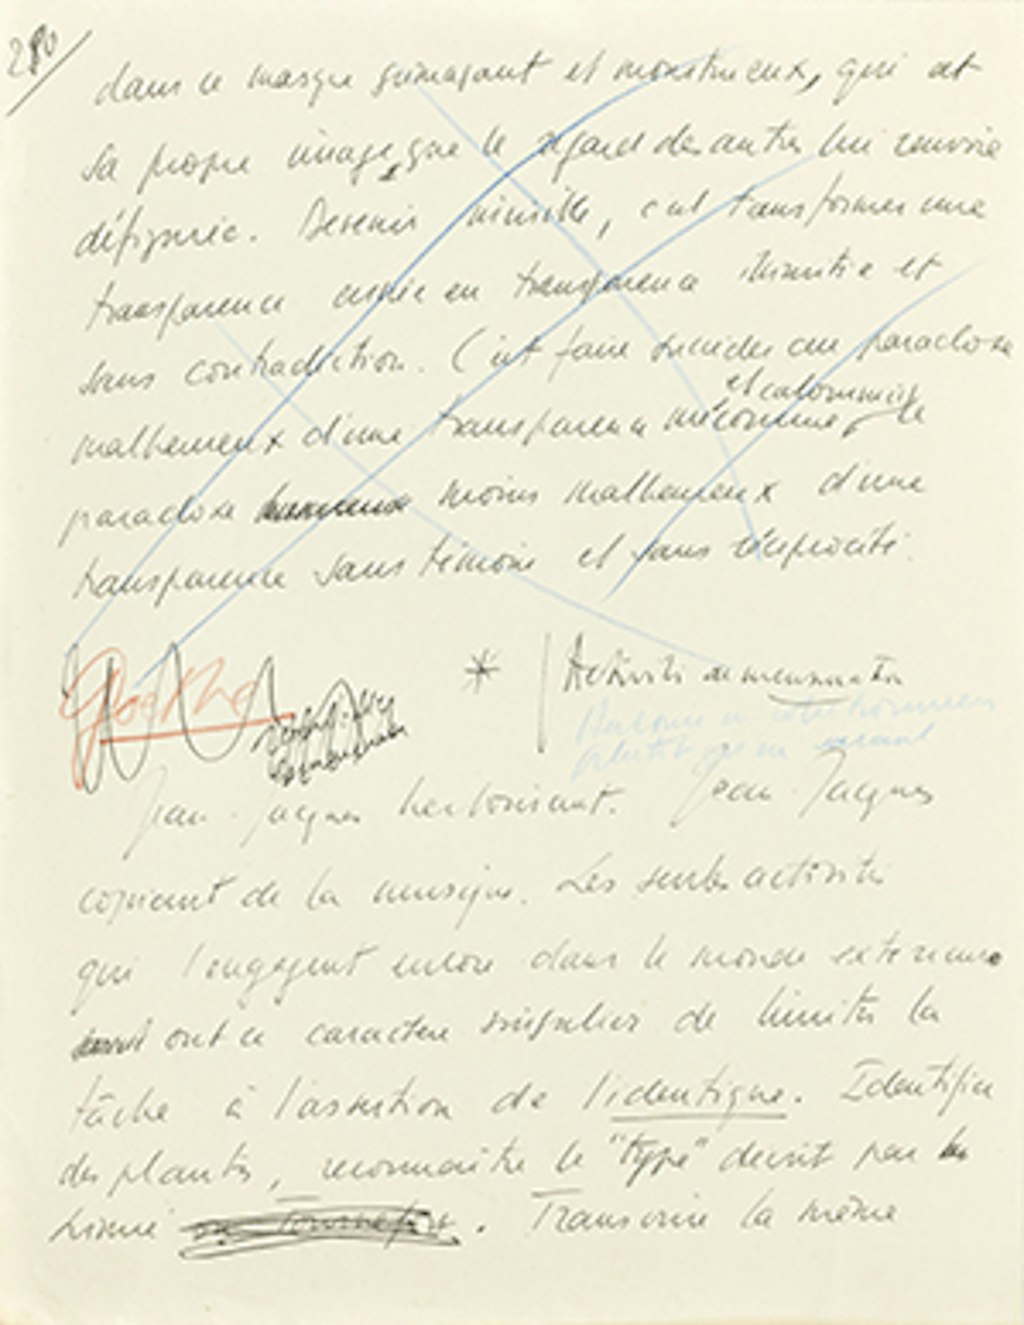 280
dans ce masque grimaçant et monstrueux, qui est
sa propre image, que le regard des autres lui renvoie
défigurée. Devenir invisible, c'est transformer une
transparence en transparence illimitée et
sans contradiction. C'est faire succéder au paradoxe
et calomniée
malheureux d'une transparence méconnue, le
paradoxe moins malheureux d'une
transparence sans témoin et sans réciprocité.
* Activités
plutôt
Jean-Jacques herborisant. Jean-Jacques
copiant de la musique. Les seules activités
qui l'engagent encore dans le monde extérieur
ont ce caractère singulier de limiter la
tâche à l'assertion de l'identique. Identifier
des plantes, reconnaître le "type" décrit par
Linné ou Tournefort. Transcrire la même